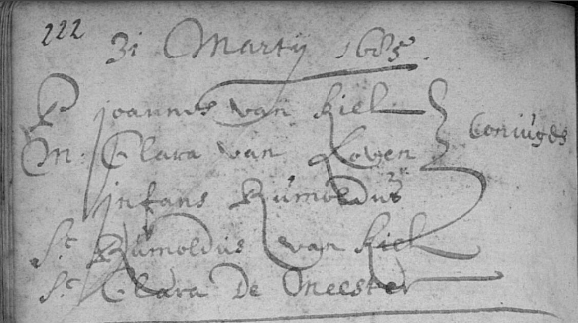 222
31 Martij 1685.
P. joannes van Kiel
M. Clara van Loven } Coniuges
infans Rumoldus
St. Rumoldus van Kiel
St. Clara De Meester